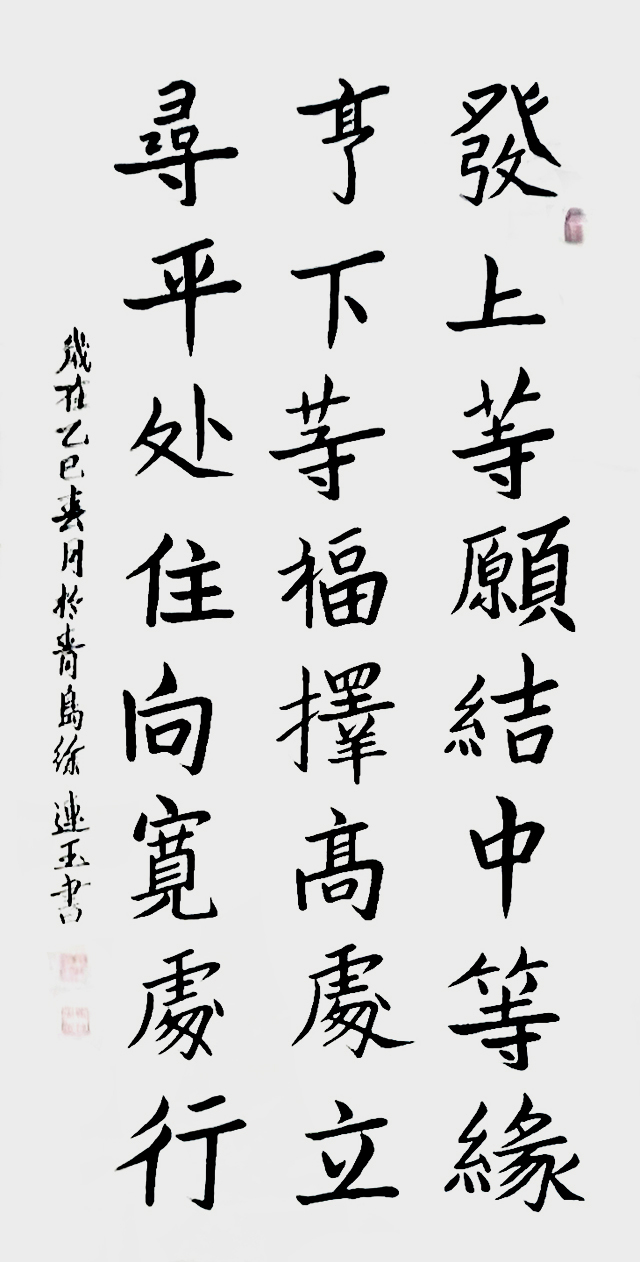 發上等願結中等緣
亨下等福擇高處立
尋平处住向寬處行
歲在乙巳春月於青島徐連玉書